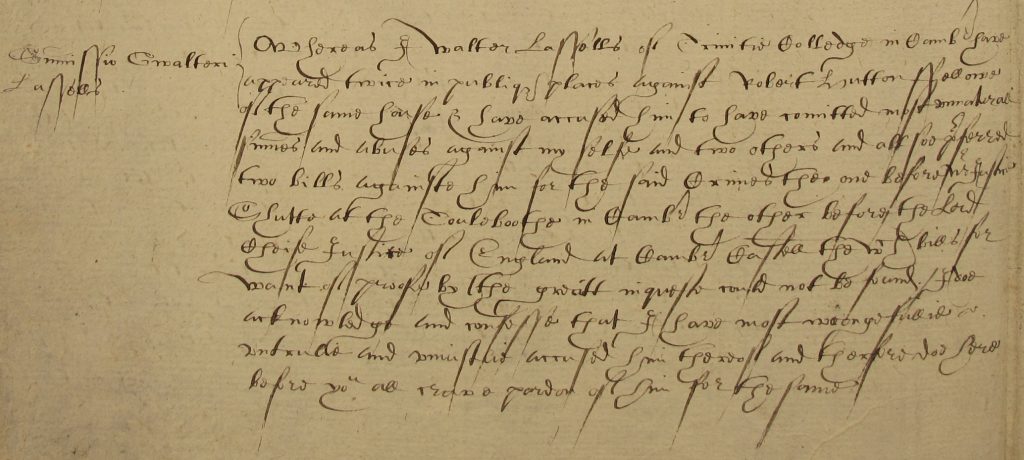 Submissio Gwalteri
Lassells
Whereas I Walter Lassells of Trinitie Colledge in Cambr have
appeared twice in publique places against Robert Hutton ffellowe
of the same house & have accused him to have comitted most unnaturall
sinnes and abuses against my selfe and two others and allsoe pferred
two bills againste him for the said Crimes the one before mr Justice
Shutte at the Toulboothe in Cambr the other before the Lord
Cheife Justice of England at Cambr Castell the wch bills for
want of proofe by the greatt inqueste could not be found, I doe
acknowledge and confesse that I have most wrongefullie
untrulie and uniustlie accused him thereof and therfore doe here
before you all crave pardon of him for the same